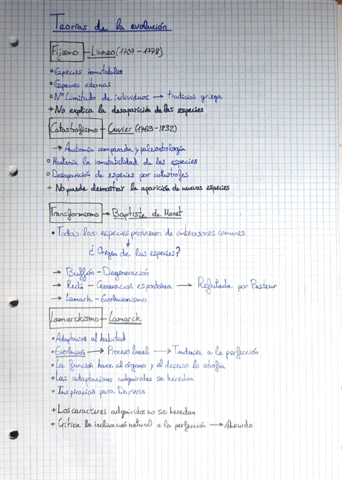 Teorías de la evolución
Fijismo - Linneo (1707-1778)
• Especies inmutables
• Especies eternas
• Nº Limitado de individuos → tradición griega
+ No explica la desaparición de las especies
Catastrofismo - Cuvier (1769-1832)
→ Anatomía comparada y paleontología
• Mantenía la inmutabilidad de las especies
• Desaparición de especies por catástrofes
+ No puede demostrar la aparición de nuevas especies
Transformismo → Baptiste de Monet
• Todas las especies provienen de antecesores comunes
¿Origen de las especies?
→ Buffon - Degeneración
→ Redi - Generación espontánea → Refutada por Pasteur
→ Lamark - Evolucionismo
Lamarckismo - Lamarck
• Adaptación al habitad
• Evolución → Proceso lineal → Tendencia a la perfección
• La función hace al órgano y el desuso lo atrofia
• Las adaptaciones adquiridas se heredan
• Inspiración para Darwin
+ Los caracteres adquiridos no se heredan
+ Critica la inclinación natural a la perfección → Absurdo